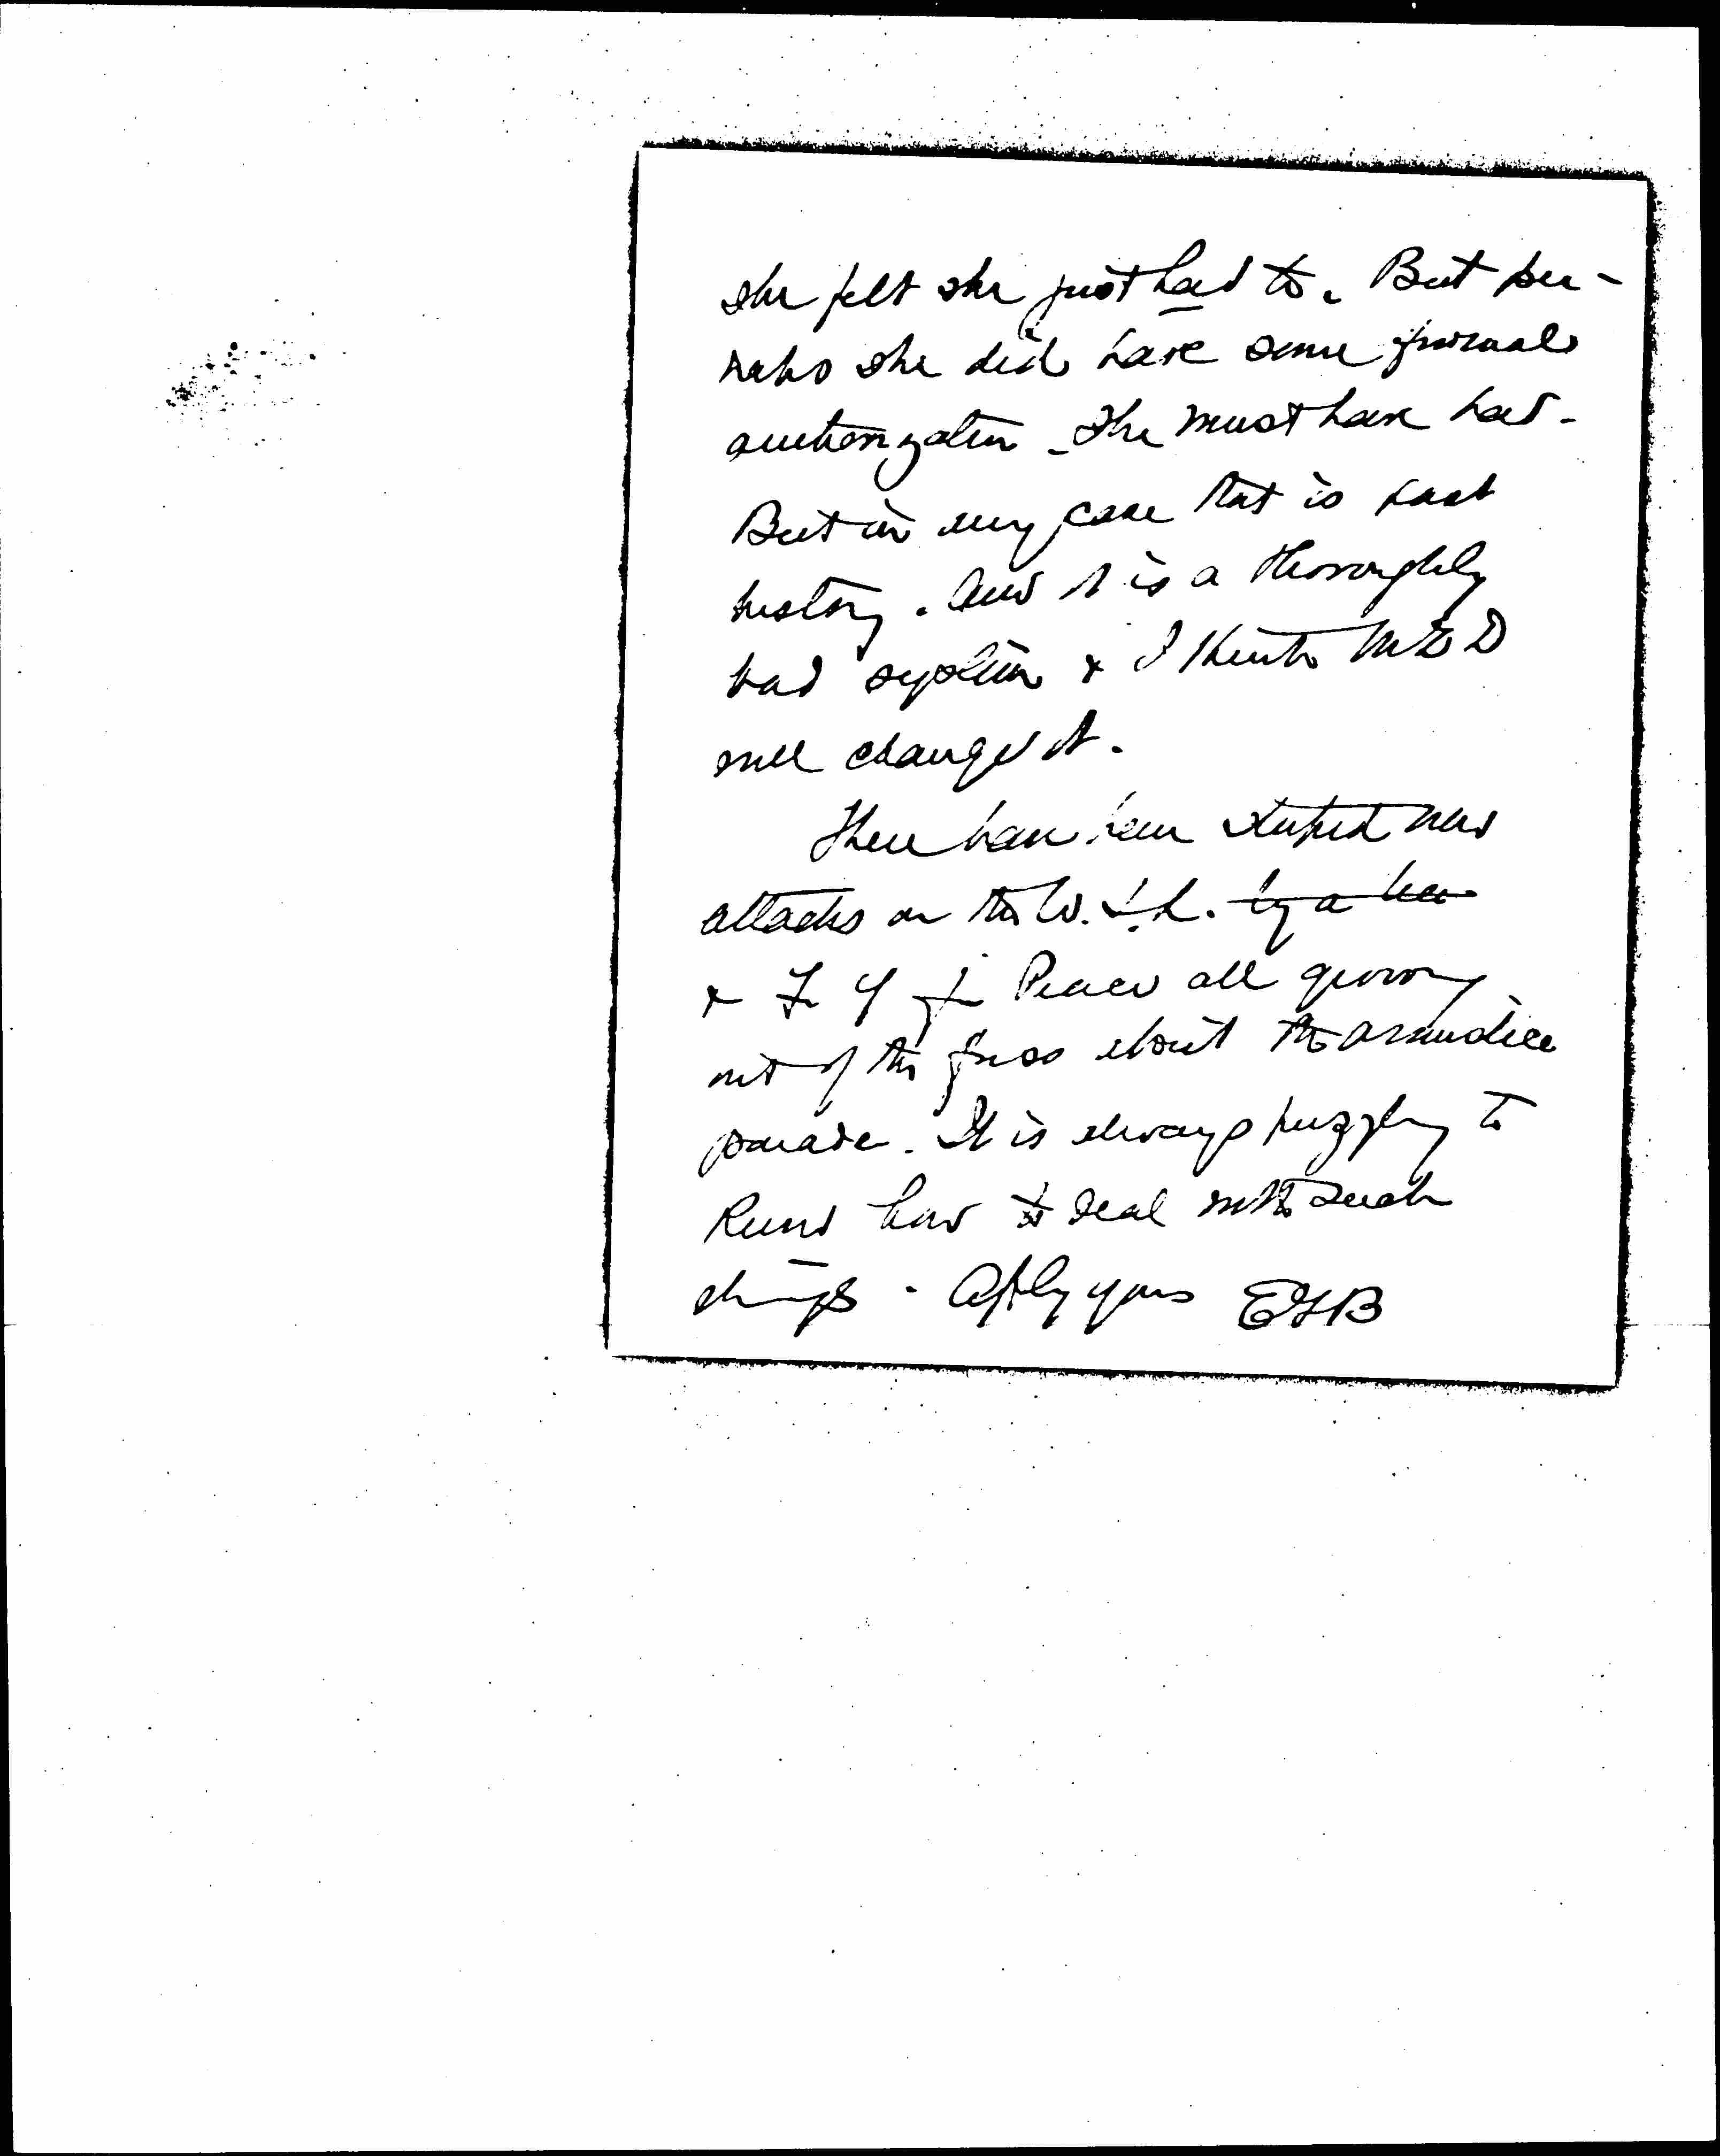 she felt she just had to. But per-
haps she did have some formal
authorization - She must have had -
But in any case that is past
history. And it is a thoroughly
bad system & I think M E D
will change it.
There have been stupid new
attacks on the W. I. L. by a
& F of Peace all growing
out of the fuss about the armistice
parade. It is always puzzling to
know how to deal with such
things. Affly yours EGB